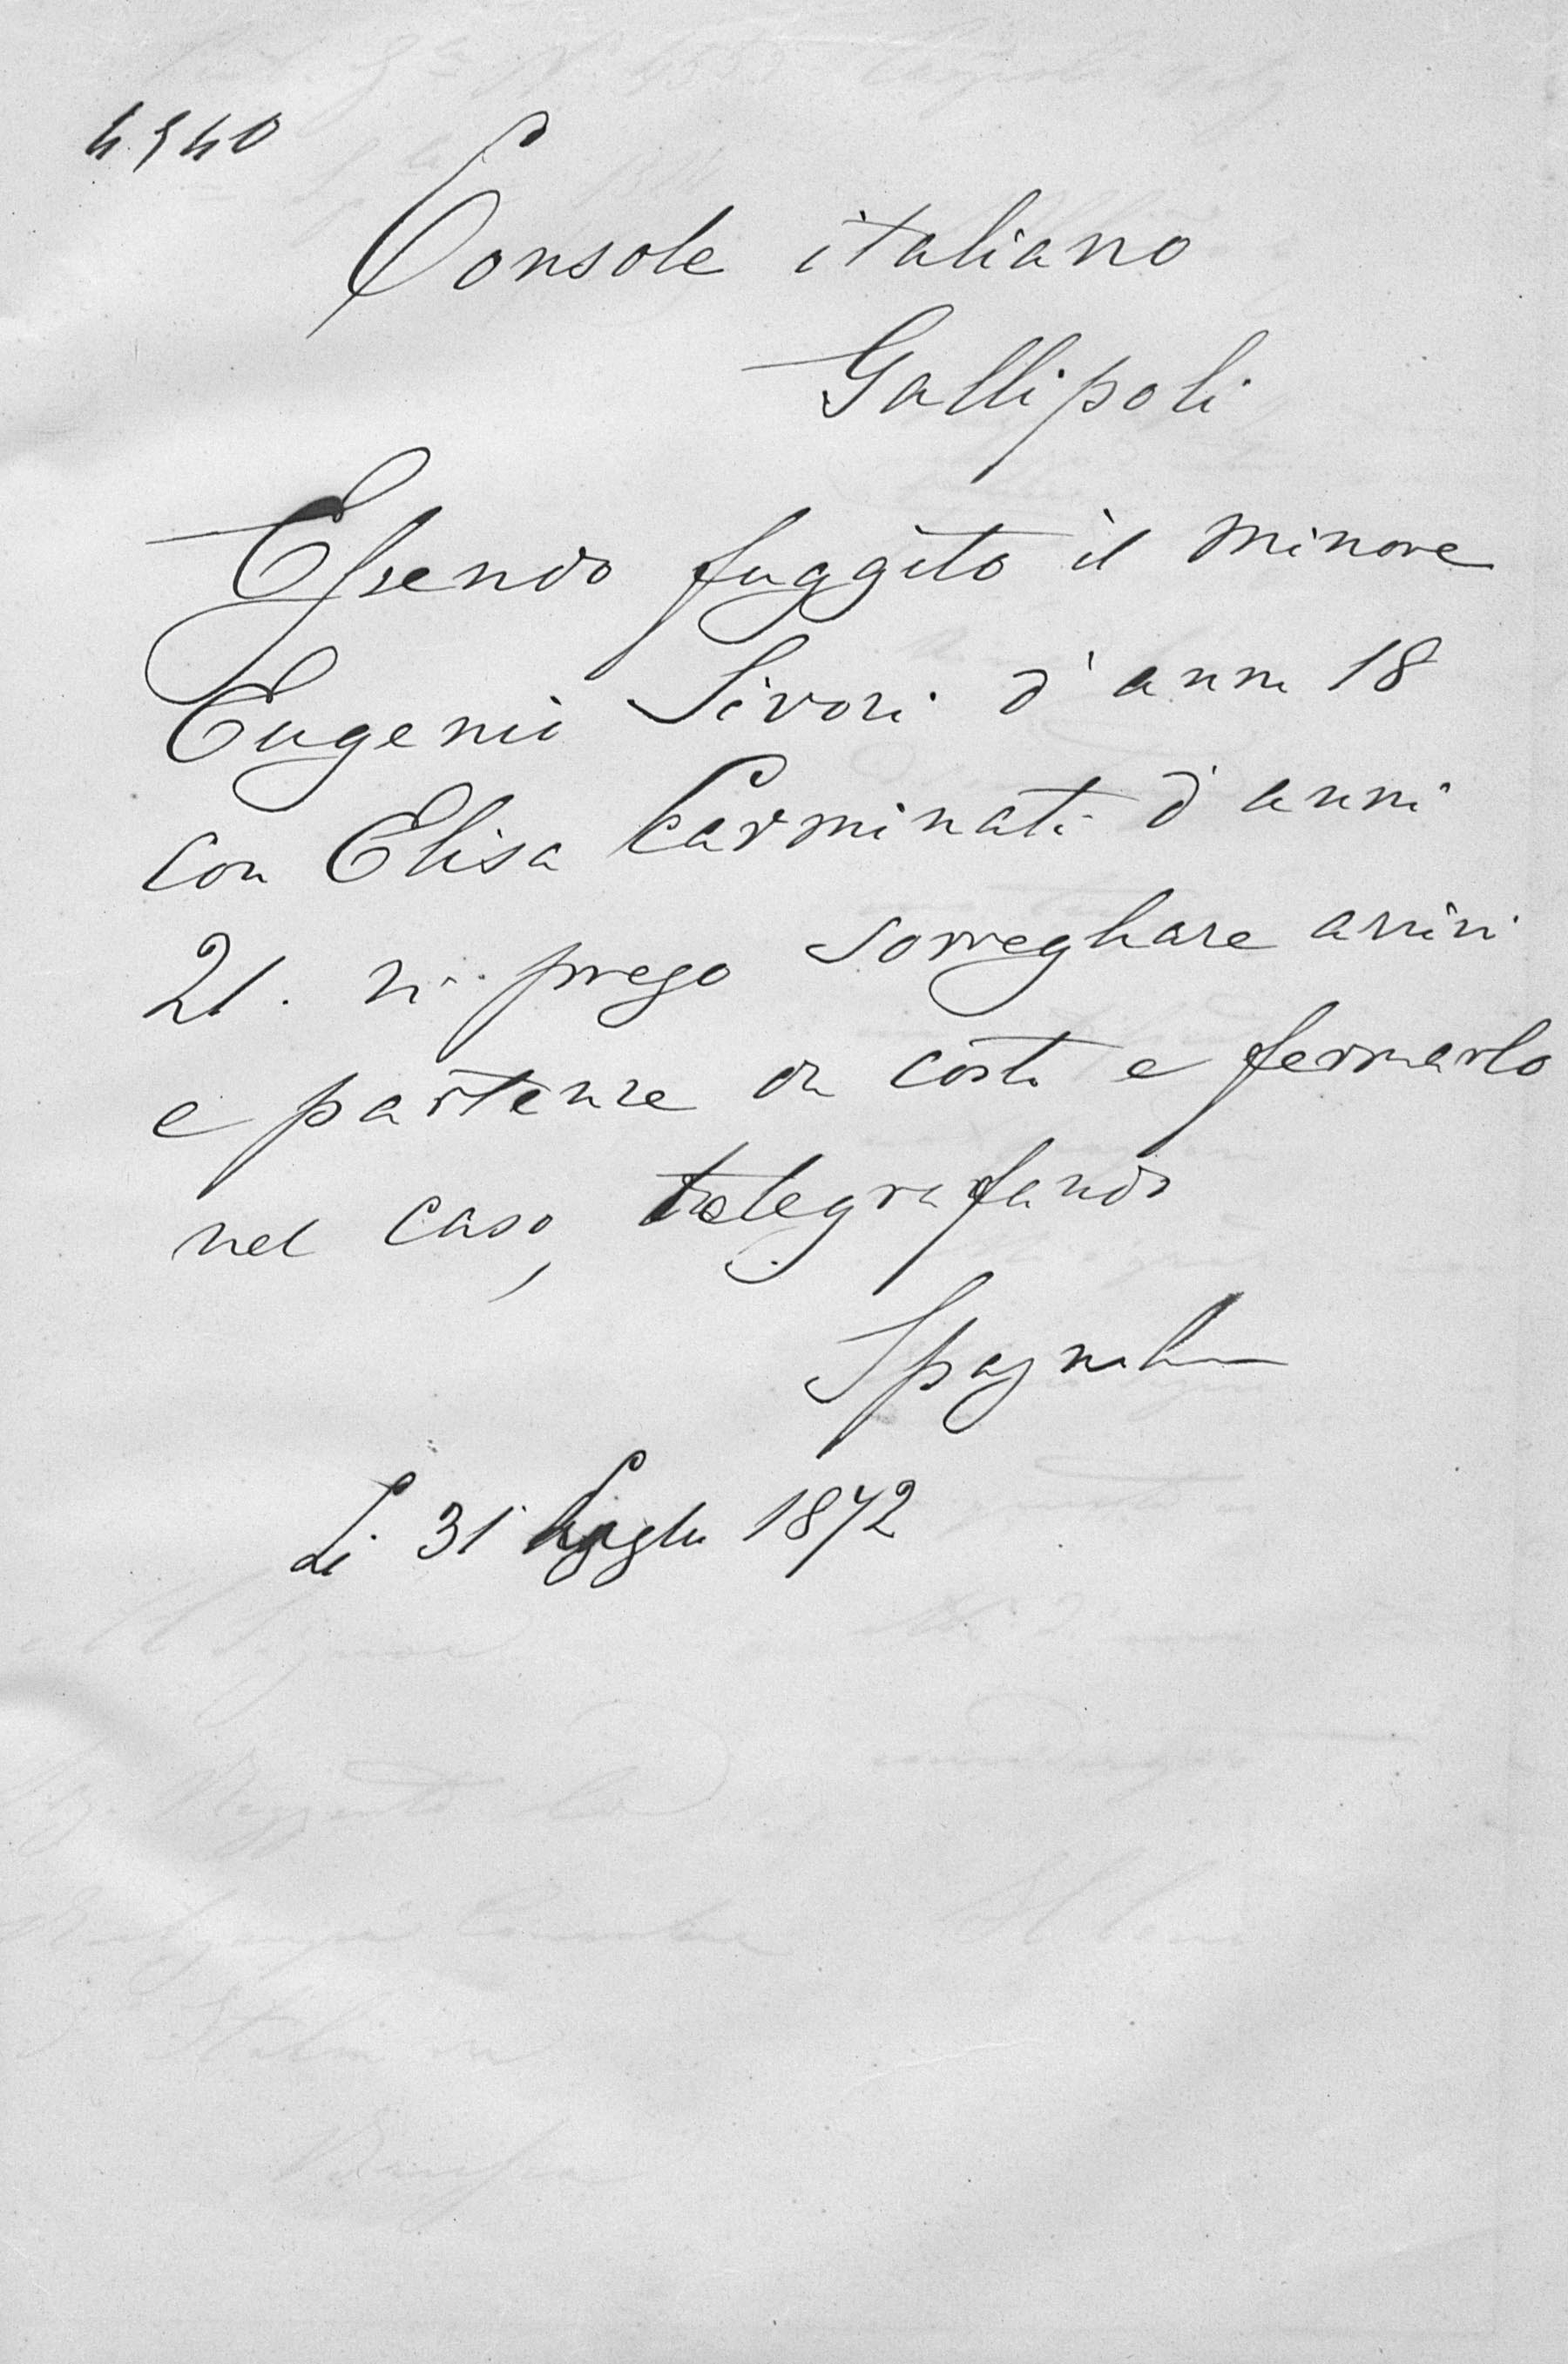 4540
Console italiano
Gallipoli
Essendo fuggito il minore
Eugenio Sivori d'anni 18
con Elisa Carminati d'anni
21. vi prego sorvegliare arrivi
e partenze da costì e fermarlo
nel caso, telegrafando
Li 31 luglio 1872